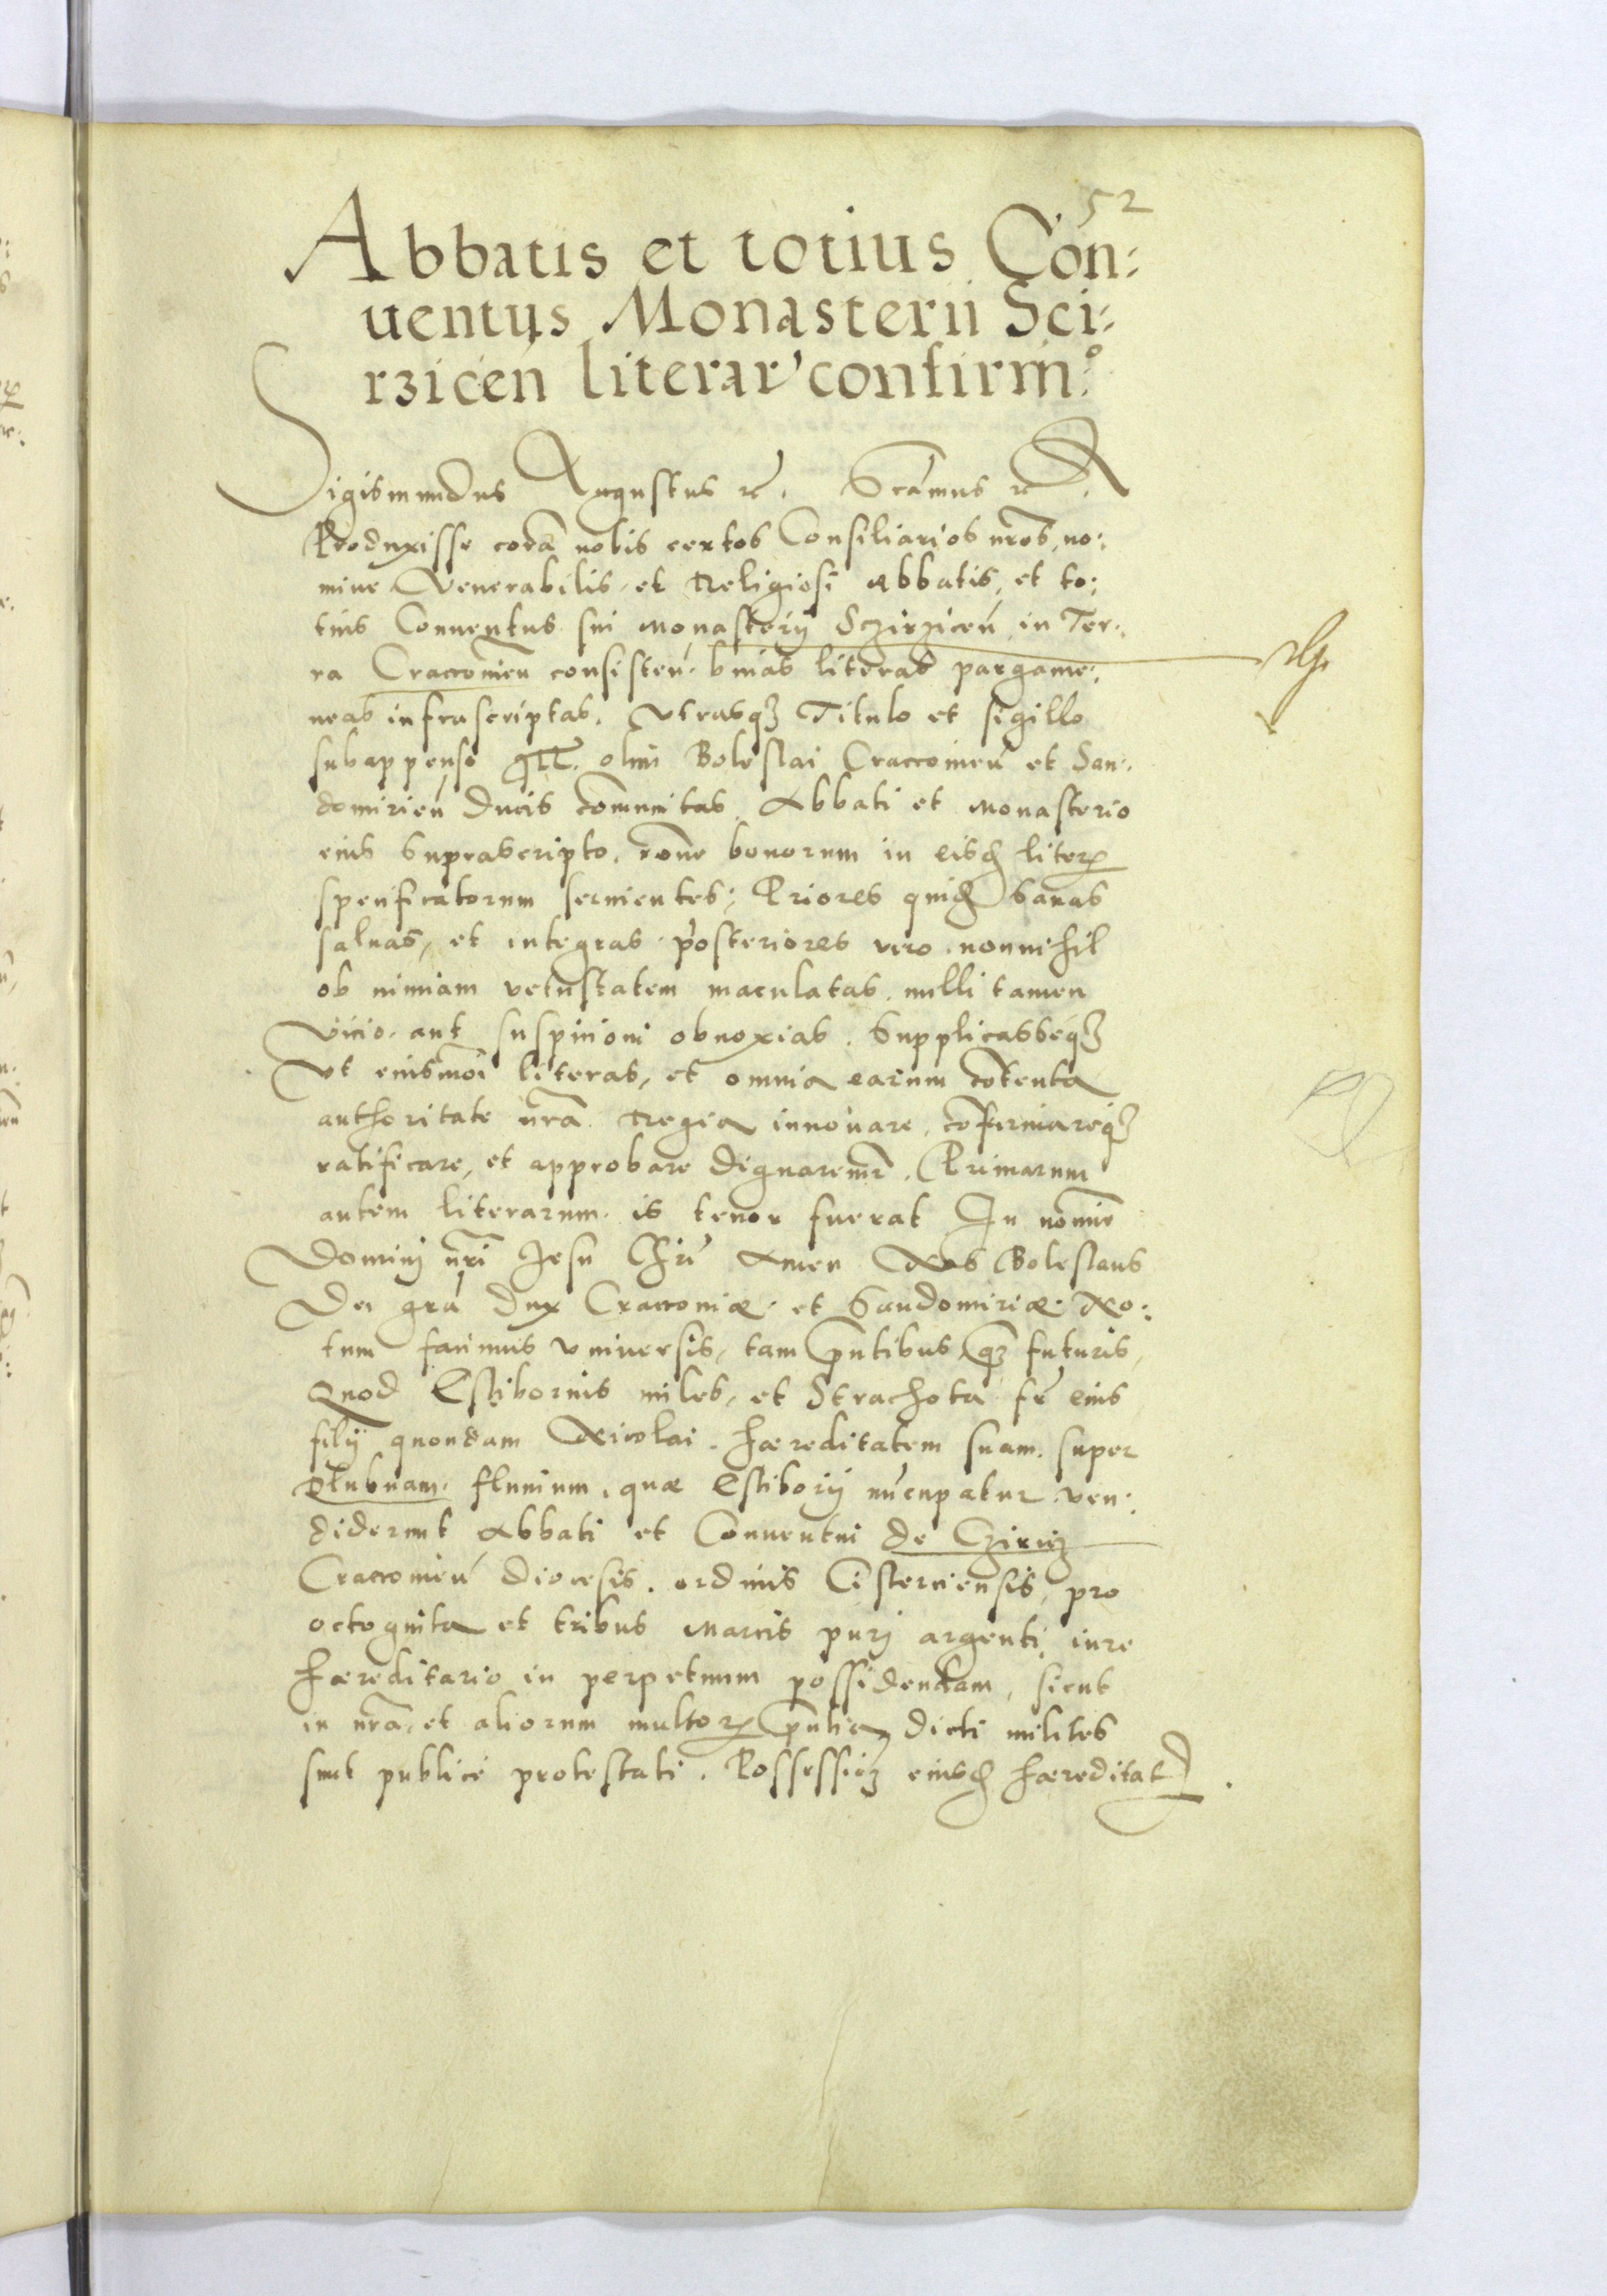 52
Abbatis et totius Con:
uentus Monasterii Sci:
rzicen literar confirm.
Sigismundus Augustus rc. Scamus rc
Produxisse cora nobis certos Consiliarios nros, no:
mine Venerabilis et Religiosi Abbatis, et to:
tius Conuentus sui Monasterij Sczirzicen in Ter:
ra Cracouien consisten. binas literas pargame:
neas infrascriptas. Vtrasq3 Titulo et sigillo
subappenso olim Boleslai Cracouien et San:
domirien Ducis comunitas. Abbati et Monasterio
eius Suprascripto, rone bonorum in eisd liter
specificatorum seruientes; Priores quid Sanas
saluas, et integras posteriores vero nonnihil
ob nimiam vetustatem maculatas, nulli tamen
vicio aut suspicioni obnoxias. Supplicasseq3
Vt eiusmoi literas, et omnia earum cotenta
authoritate nra Regia innouare, cofirmareq3
ratificare, et approbare dignaremr. Primarum
autem literarum is tenor fuerat In nomine
Domini nri Jesu Chri Amen Nos Boleslaus
Dei gra Dux Cracouiæ et Sandomiriæ No:
tum facimus vniuersis, tam pntibus q3 futuris,
Quod Estibornis miles, et Strachota fr eius
filij quondam Nicolai. hæreditatem suam super
Dlubnam fluuium, quæ Estiborij nucupatur ven:
diderunt Abbati et Conuentui de Cziricz
Cracouien diocesis. ordinis Cisterciensis, pro
octoginta et tribus Marcis puri argenti iure
hæreditario in perpetuum possidendam, sicut
in nra et aliorum multor pntia dicti milites
sunt publice protestati. Possessio3 eiusd hæreditat